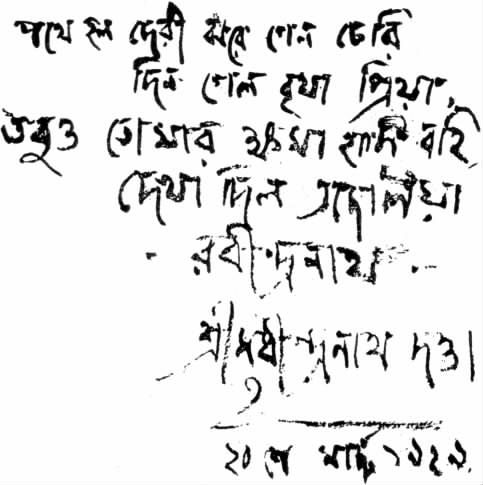 পথে হল দেরী ঝরে গেল চেরি
দিন গেল বৃথা প্রিয়া,
তবুও তোমার ক্ষমা হাসি বহি
দেখা দিল এজেলিয়া
- রবীন্দ্রনাথ -
শ্রীসুধীন্দ্রনাথ দত্ত।
২০শে মার্চ্চ ১৯২৯